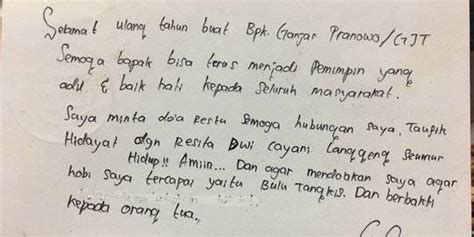 Selamat ulang tahun buat Bpk. Ganjar Pranowo/GJT
Semoga bapak bisa terus menjadi Pemimpin yang
adil & baik hati kepada seluruh masyarakat.
Saya minta do'a Restu Semoga hubungan saya, Taufik
Hidayat dgn Resita Dwi Cayani Langgeng Seumur
Hidup!! Amiin... Dan agar mendoakan saya agar
hobi saya tercapai yaitu Bulu Tangkis. Dan berbakti
kepada orang tua.,